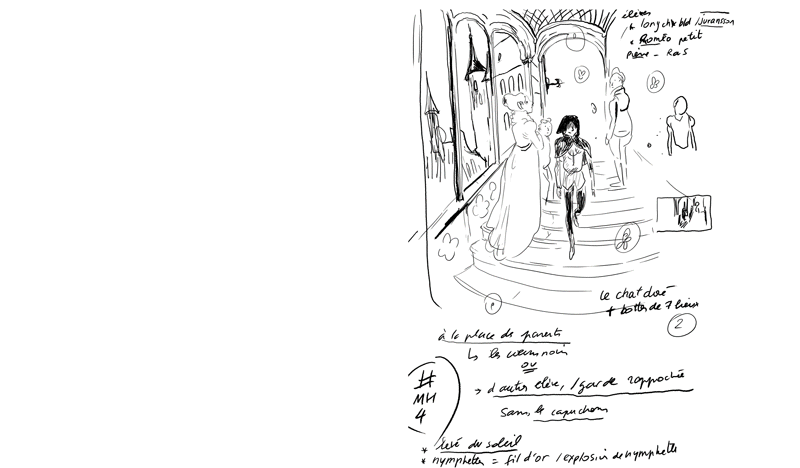 élèves
longch bld / Juransson
* Roméo petit
Pierre - Ras
le chat doré
+ bottes de 7 lieux
2
à la place de parents
↳ les
ou
→ d'autres élève, / garde rapprochée
sans le capuchon
#
MH
4
* levé du soleil
* nymphettes = fil d'or / explosion de nymphettes